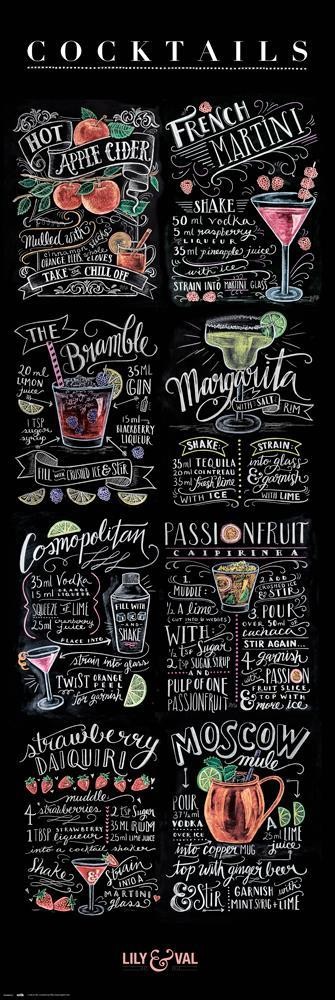 COCKTAILS
HOT
APPLE CIDER
Mulled with
cinnamon sticks
ORANGE PEELS & CLOVES
TAKE THE CHILL OFF
FRENCH
MARTINI
SHAKE
50 ml vodka
5 ml raspberry
LIQUEUR
35 ml pineapple juice
with ice
STRAIN INTO MARTINI GLASS
THE
Bramble
20 ml
LEMON
juice
35 ML
GIN
1 TSP
sugar
syrup
15 ml
BLACKBERRY
LIQUEUR
FILL WITH CRUSHED ICE & STIR
Margarita
WITH SALT RIM
SHAKE:
35ml TEQUILA
20ml COINTREAU
35ml fresh lime
WITH ICE
STRAIN:
into glass
& garnish
WITH LIME
Cosmopolitan
35ml Vodka
15ml ORANGE LIQUEUR
SQUEEZE OF LIME
25ml cranberry juice
PLACE INTO
FILL WITH
ICE
AND
SHAKE
strain into glass
TWIST ORANGE PEEL
for garnish
PASSIONFRUIT
CAIPIRINHA
1.
MUDDLE:
1/2 A lime
(CUT INTO 8 WEDGES)
WITH
1/2 tsp Sugar
2 tsp SUGAR SYRUP
AND
PULP OF ONE
PASSIONFRUIT
2. ADD
CRUSHED ICE
& STIR
3. POUR
OVER 50ml of
cachaca
STIR AGAIN...
4. garnish
with PASSION
FRUIT SLICE
& TOP WITH
more ice
strawberry
DAIQUIRI
muddle
4 strawberries
1 TBSP STRAWBERRY liqueur
2 tsp Sugar
35 ML RUM
25ml LIME JUICE
into a cocktail shaker
Shake & Strain
INTO A
MARTINI
glass
MOSCOW
mule
POUR
37 1/2 ml
VODKA
OVER ICE
25 ml
LIME
juice
into copper MUG
top with ginger beer
& STIR
GARNISH with
MINT SPRIG + LIME
LILY & VAL